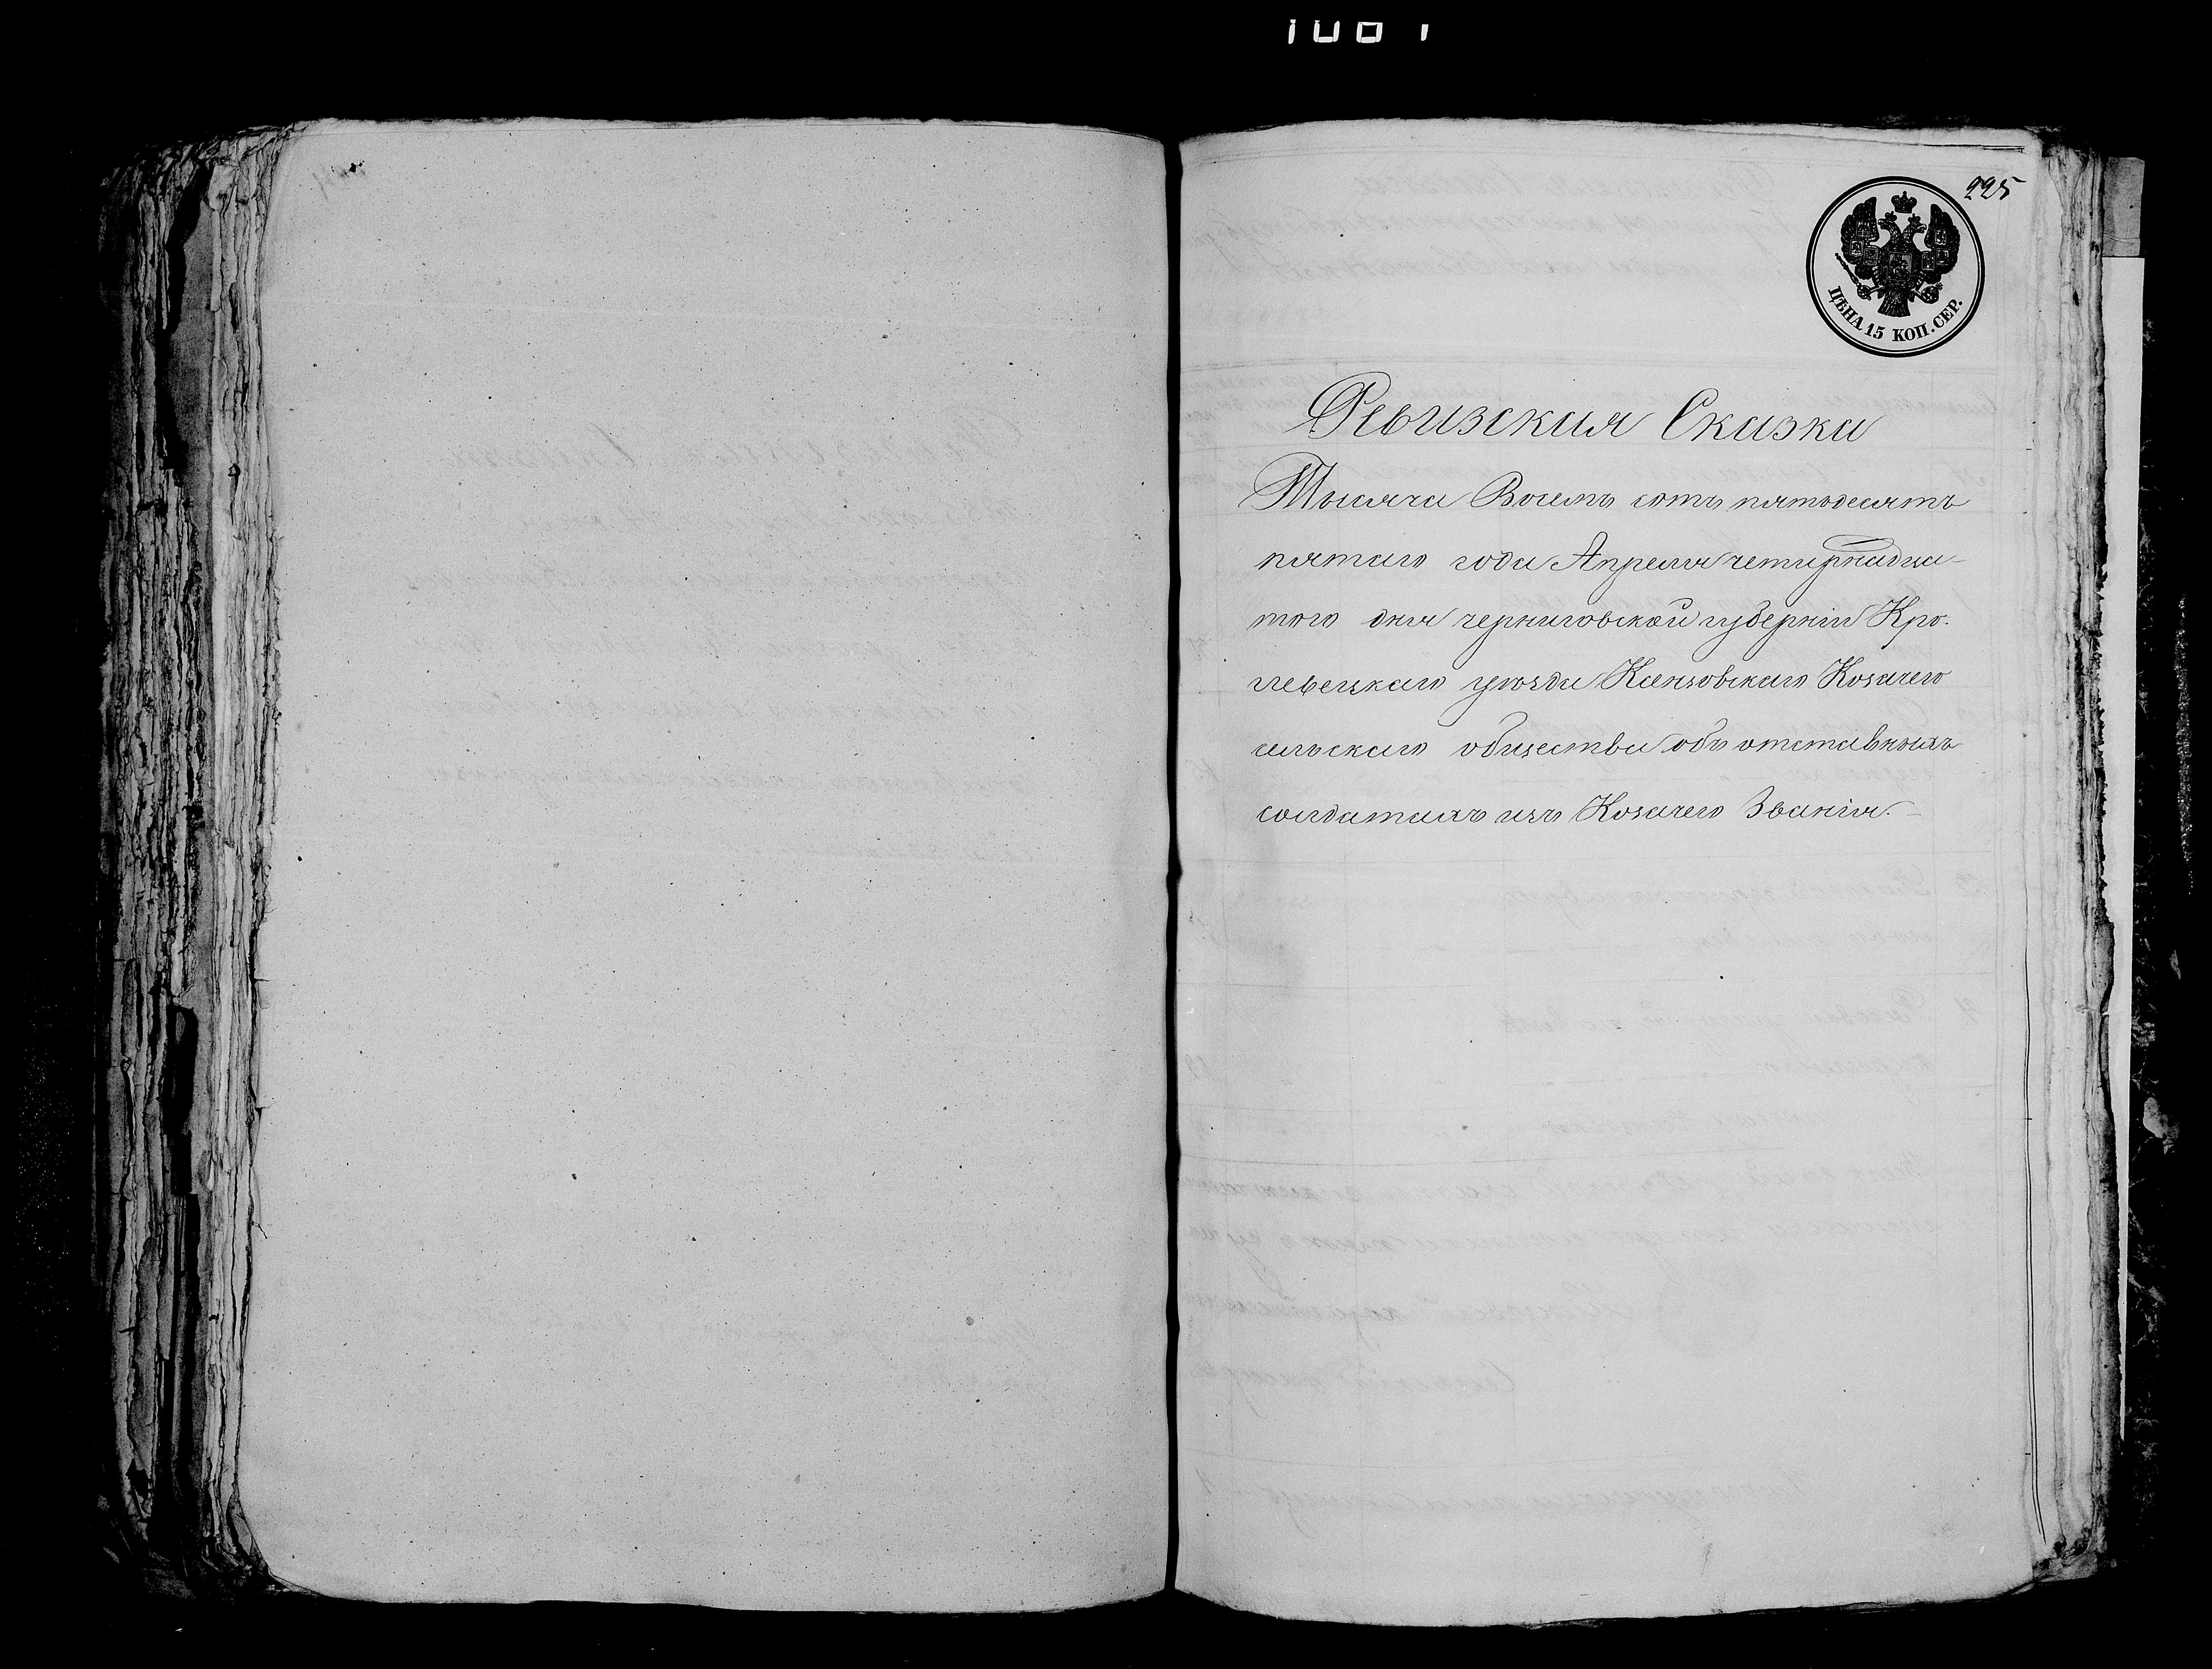 225
ЦѢНА 15 КОП. СЕР.
Ревизская Сказка
Тысяча Восемь сотъ пятьдесятъ
пятаго года Апреля четирнадца-
того дня черниговской губерніи Кро-
левецкаго уѣзда Козачего
сельскаго общества объ отставныхъ
солдатахъ изъ Козачего Званія.